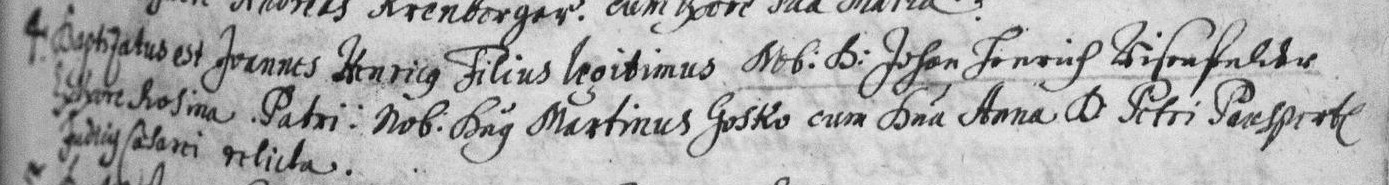 Andreas Krenberger. cum Uxore sua Maria.
4. Baptizatus est Joannes Henricg Filius legitimus Nob: D: Johan Henrich
Uxore Rosina. Patri: Nob. Dng Martinus Gosko cum Dna Anna D. Petri
Judicis Caesarei relicta.